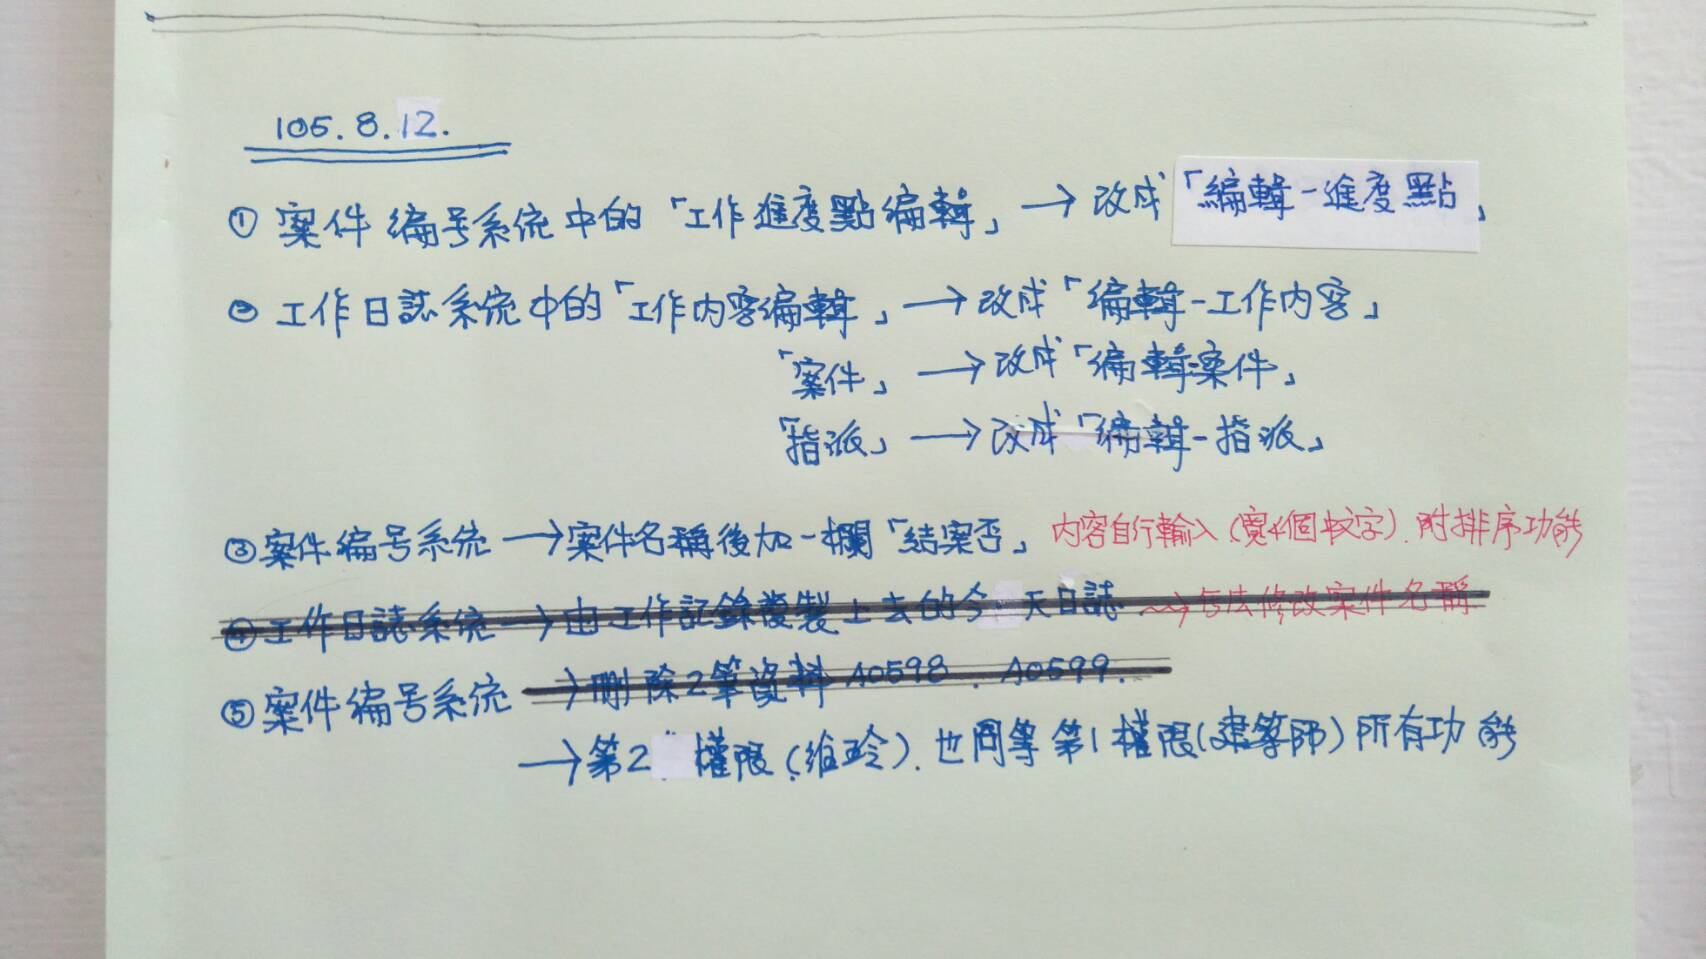 105.8.12.
① 案件編号系統中的「工作進度點編輯」→ 改成「編輯-進度點」
② 工作日誌系統中的「工作內容編輯」→ 改成「編輯-工作內容」
「案件」→ 改成「編輯-案件」
「指派」→ 改成「編輯-指派」
③ 案件編号系統 → 案件名稱後加一欄「結案否」 內容自行輸入(寬4個中文字).附排序功能
④ 工作日誌系統 → 由工作記錄複製上去的今天日誌 → 法修改案件名稱
⑤ 案件編号系統 → 刪除2筆資料 A0598、A0599.
→ 第2權限(維玲).也同等第1權限(建等師)所有功能